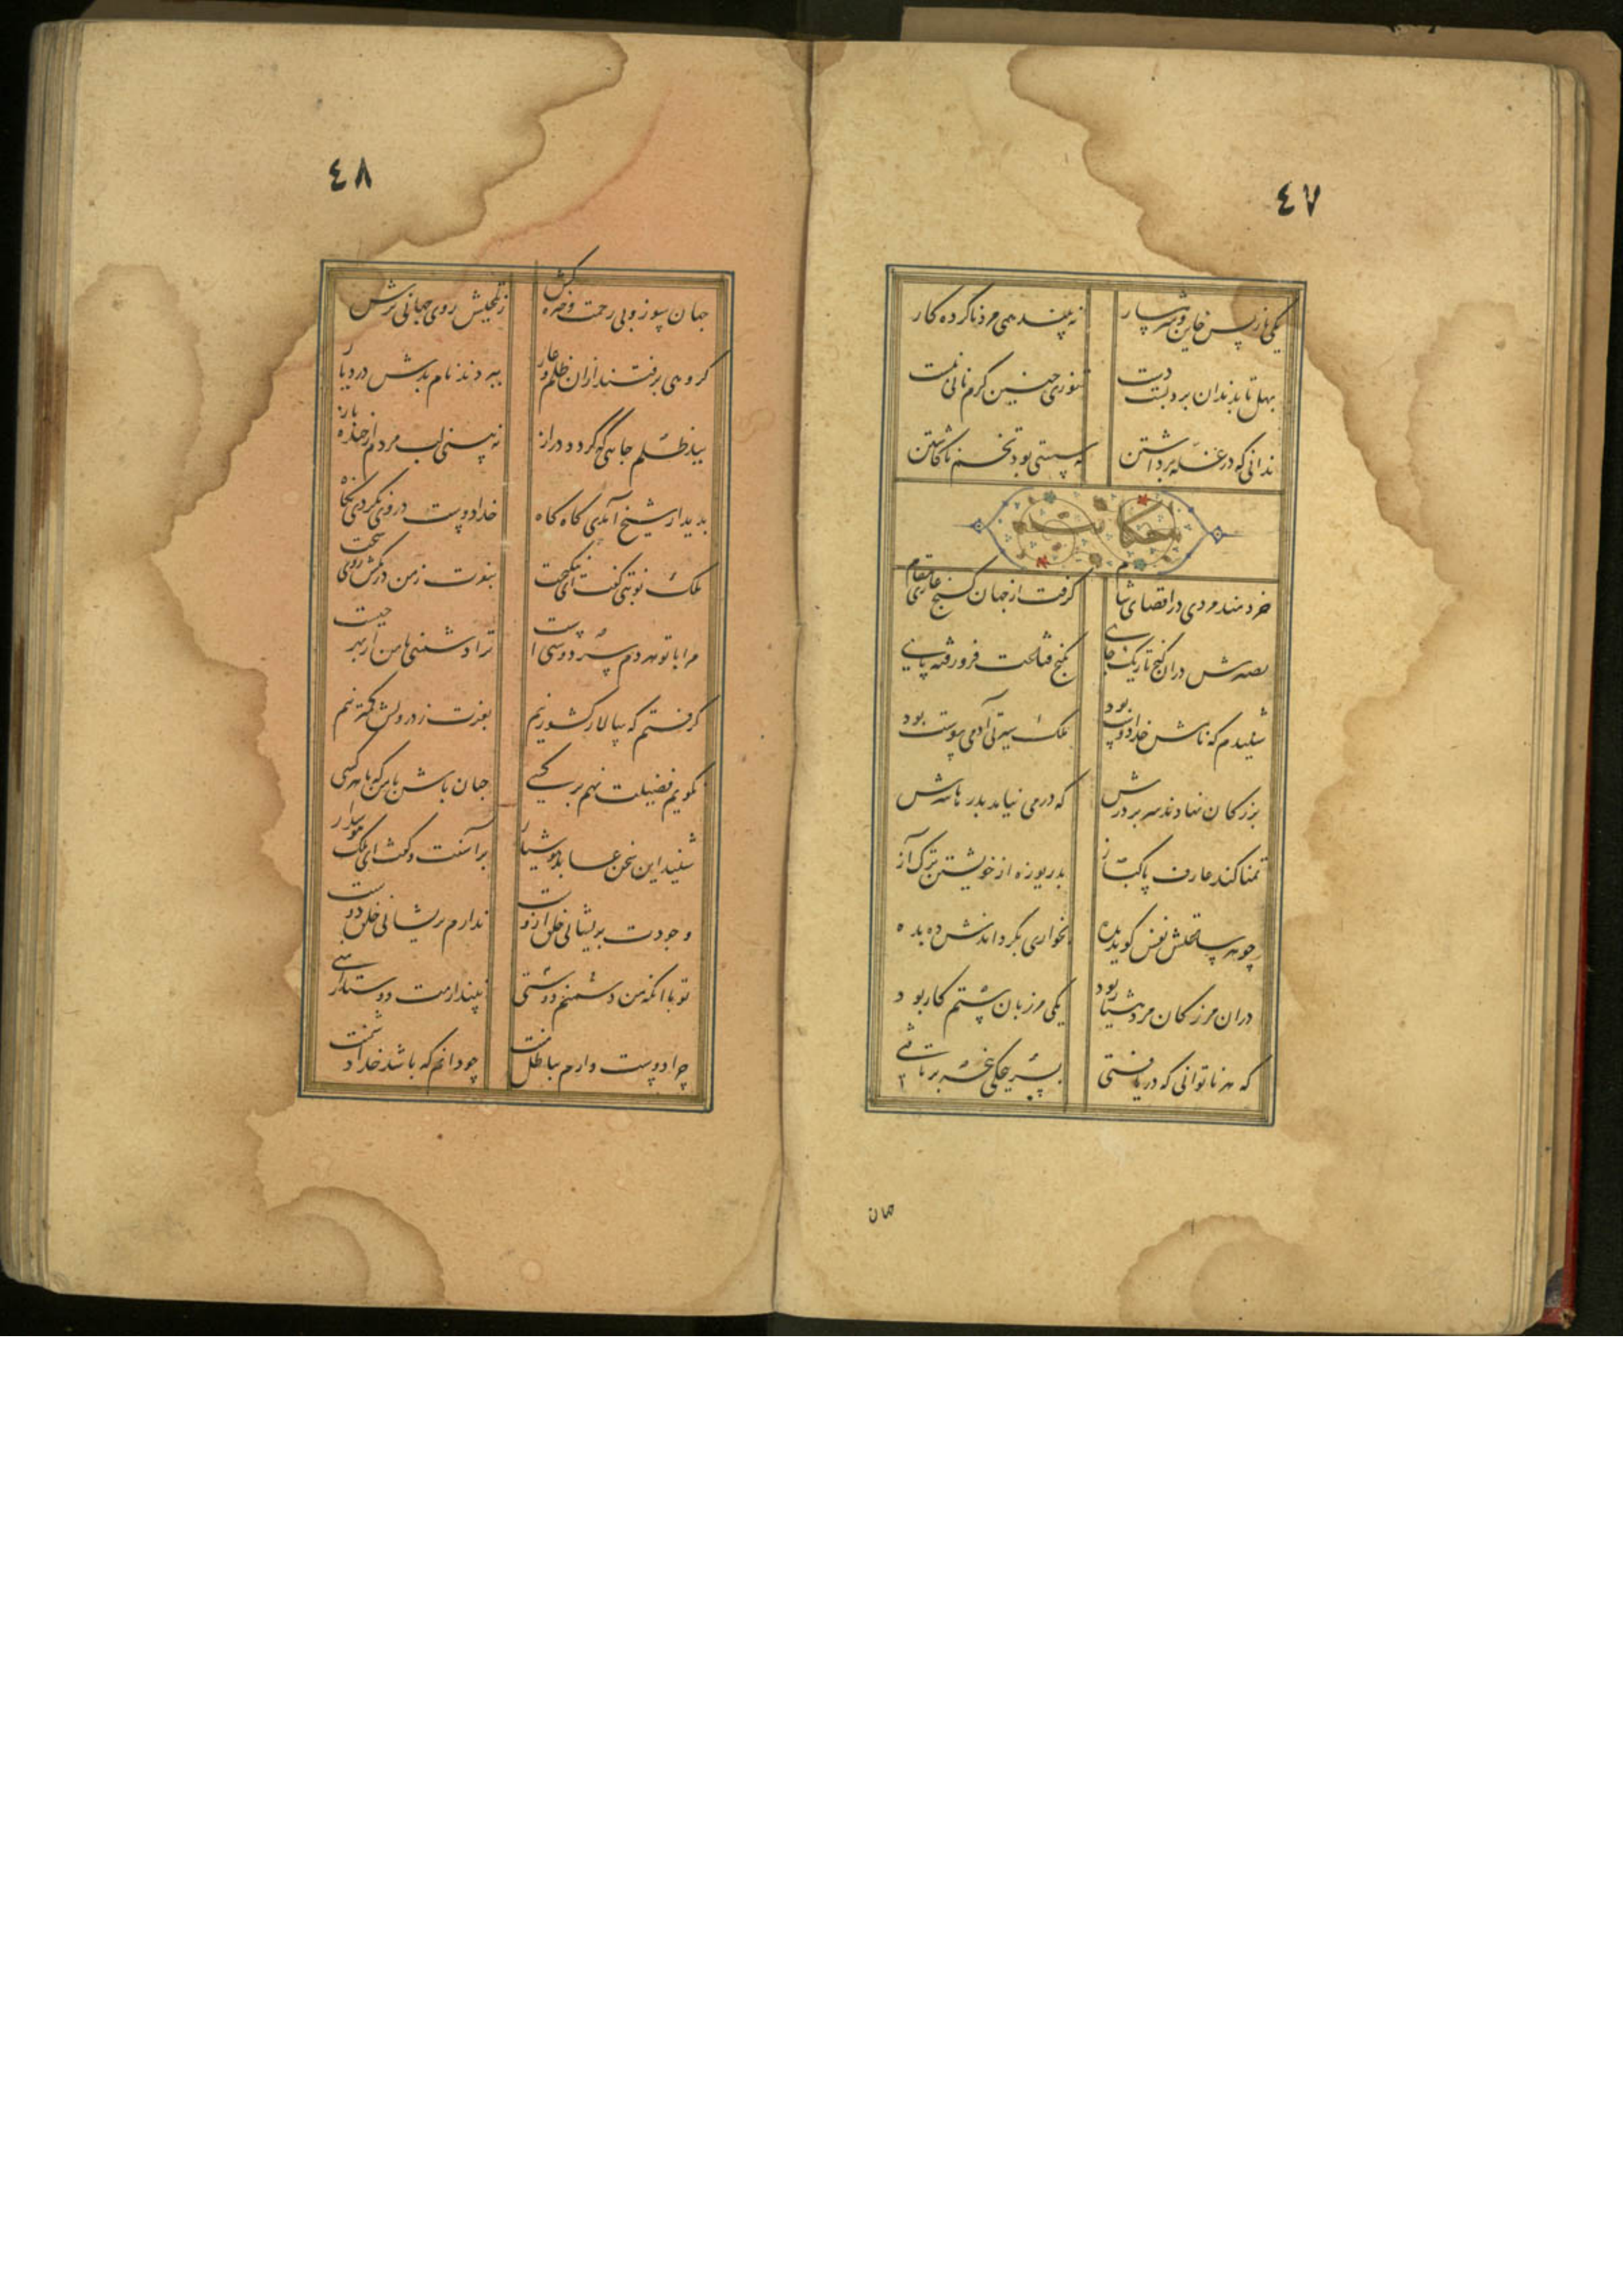 ٤٧
یکی باز پس خاین و شرمسار نه بیند همی مرد ناکرده کار
بهل تا بدندان برد پشت دست تنوری چنین گرم نانی نبست
ندانی که در غله برداشتن که سستی بود تخم ناکاشتن
حکایت
خردمند مردی در اقصای شام گرفت از جهان کنج غاری مقام
بصبرش در آن کنج تاریک جای بکنج قناعت فرو رفته پای
شنیدم که نامش خدادوست بود ملک سیرتی آدمی پوست بود
بزرکان نهادند سر بر درش که در می نیامد بدرها سرش
تمنا کند عارف پاکباز بدریوزه از خویشتن ترک آز
چو هر ساعتش نفس کوید بده بخواری بکرداندش ده بده
در آن مرز کان مرد هشیار بود یکی مرزبان ستمکار بود
که هر ناتوانی که دریافتی بسرپنجکی پنجه برتافتی
جهان
٤٨
جهان سوز و بی رحمت و خیره کش ز تلخیش روی جهانی ترش
کروهی برفتند از آن ظلم و عار ببردند نام بدش در دیار
بید ظلم جایی که کردد دراز نه بینی لب مردم از خنده باز
بدیدار شیخ آمدی کاه کاه خدادوست در وی نکردی نکاه
ملک نوبتی کفتش ای نیکبخت بنفرت ز من در مکش روی سخت
مرا با تو دانی سر دوستی است ترا دشمنی با من از بهر چیست
کرفتم که سالار کشور نیم بعزت ز درویش کمتر نیم
نکویم فضیلت نهم بر کسی چنان باش با من که با هر کسی
شنید این سخن عابد هوشیار بر آشفت و کفت ای ملک هوش دار
وجودت پریشانی خلق ازوست ندارم پریشانی خلق دوست
تو با آنکه من دوستم دشمنی نپندارمت دوستدار منی
چرا دوست دارم بباطل منت چو دانم که باشد خدا دشمنت